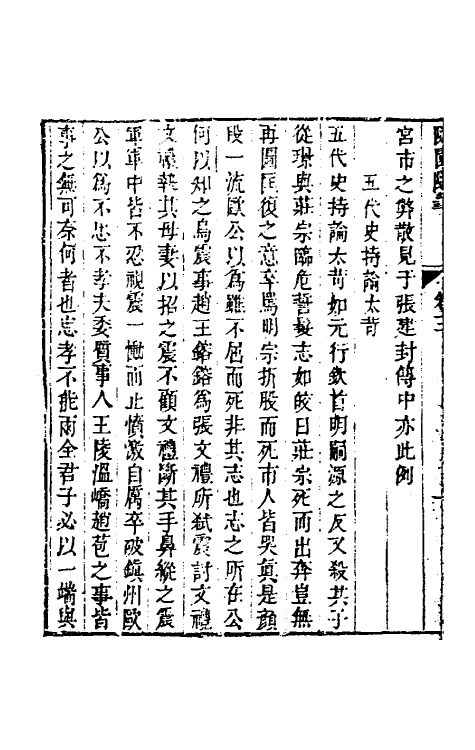 隨園隨筆　卷三
宮市之弊散見于張建封傳中亦此例
五代史持論太苛
五代史持論太苛如元行欽首明嗣源之反又殺其子
從璟與莊宗臨危誓髮志如皎日莊宗死而出奔豈無
再圖恢復之意卒罵明宗折股而死市人皆哭眞是顏
段一流歐公以爲雖不屈而死非其志也志之所在公
何以知之烏震事趙王鎔鎔爲張文禮所弑震討文禮
文禮執其母妻以招之震不顧文禮斷其手鼻縱之震
軍軍中皆不忍視震一慟而止憤激自厲卒破鎭州歐
公以爲不忠不孝夫委質事人王陵溫嶠趙苞之事皆
事之無可奈何者也忠孝不能兩全君子必以一端與